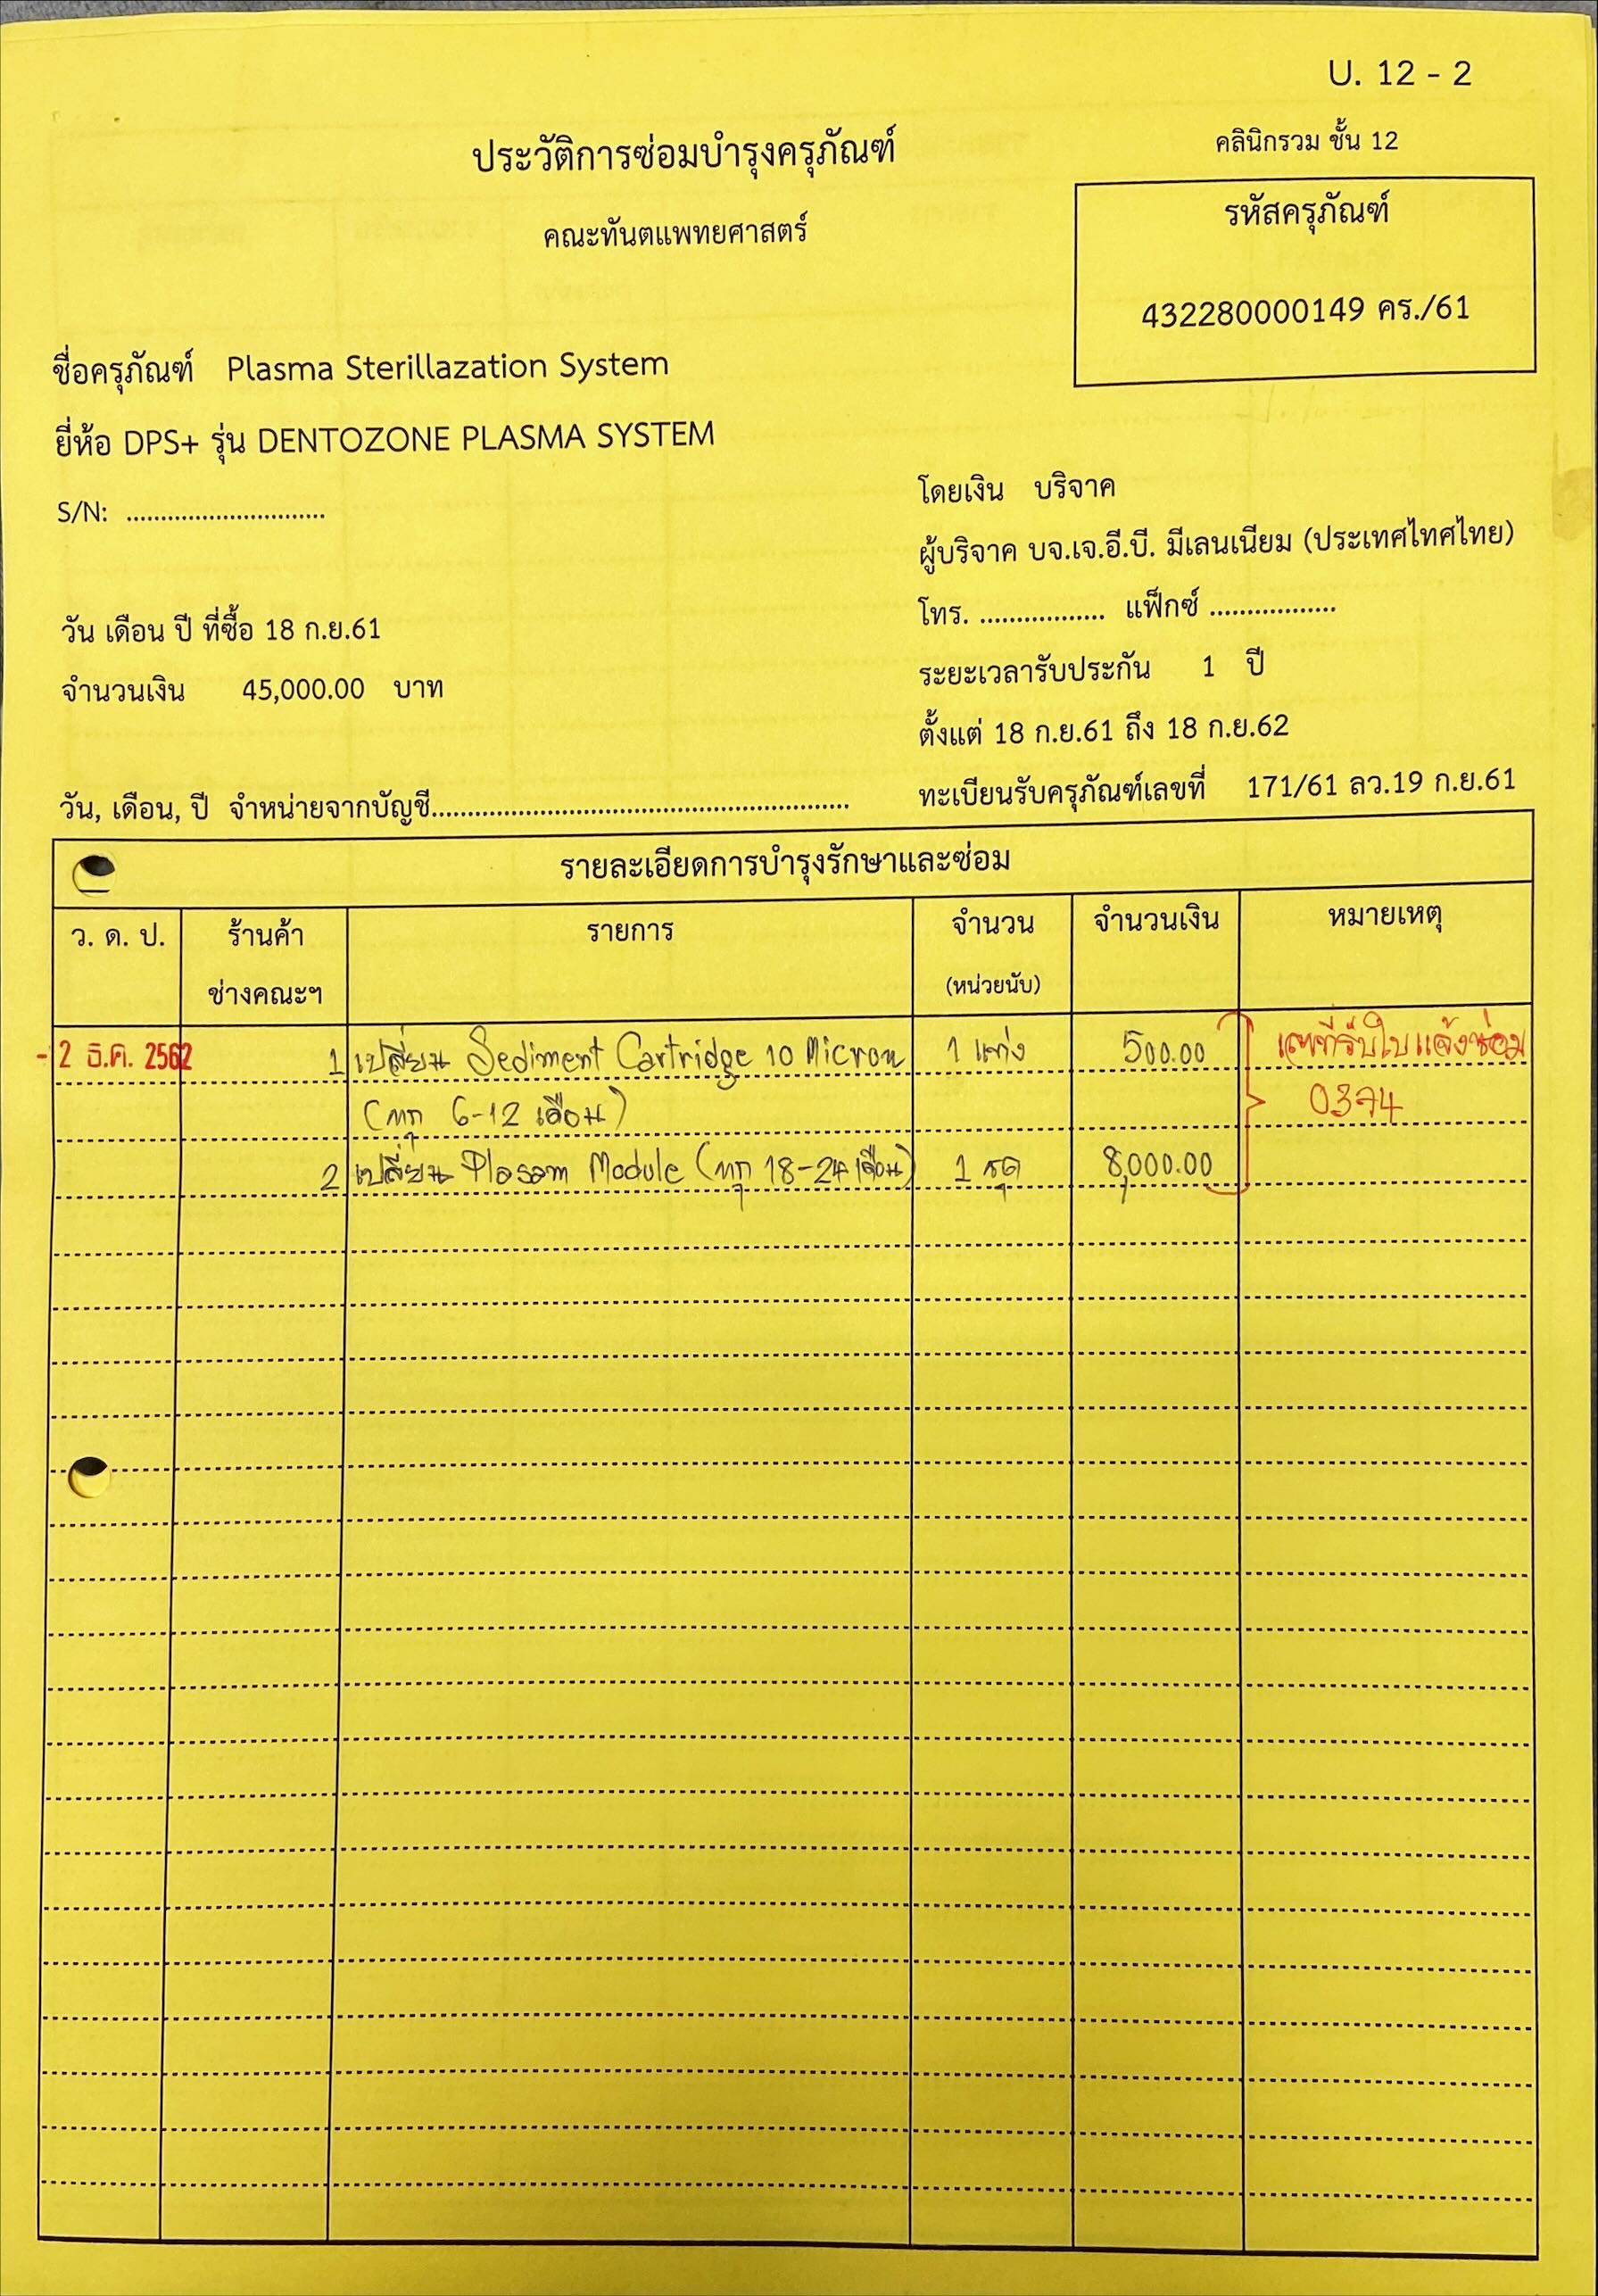 U. 12 - 2
ประวัติการซ่อมบำรุงครุภัณฑ์
คลินิกรวม ชั้น 12
คณะทันตแพทยศาสตร์
รหัสครุภัณฑ์
432280000149 คร./61
ชื่อครุภัณฑ์ Plasma Sterillazation System
ยี่ห้อ DPS+ รุ่น DENTOZONE PLASMA SYSTEM
S/N: .............................
โดยเงิน บริจาค
ผู้บริจาค บจ.เจ.อี.บี. มีเลนเนียม (ประเทศไทศไทย)
โทร. .................. แฟ็กซ์ ..................
วัน เดือน ปี ที่ซื้อ 18 ก.ย.61
ระยะเวลารับประกัน 1 ปี
จำนวนเงิน 45,000.00 บาท
ตั้งแต่ 18 ก.ย.61 ถึง 18 ก.ย.62
วัน, เดือน, ปี จำหน่ายจากบัญชี..........................................................
ทะเบียนรับครุภัณฑ์เลขที่ 171/61 ลว.19 ก.ย.61
รายละเอียดการบำรุงรักษาและซ่อม
ว. ด. ป. ร้านค้า รายการ จำนวน จำนวนเงิน หมายเหตุ
ช่างคณะฯ (หน่วยนับ)
-2 ธ.ค. 2562 1 เปลี่ยน Sediment Cartridge 10 Micron 1 แท่ง 500.00 เลขที่รับใบแจ้งซ่อม
(ทุก 6-12 เดือน) 0374
2 เปลี่ยน Plasam Module (ทุก 18-24 เดือน) 1 ชุด 8,000.00